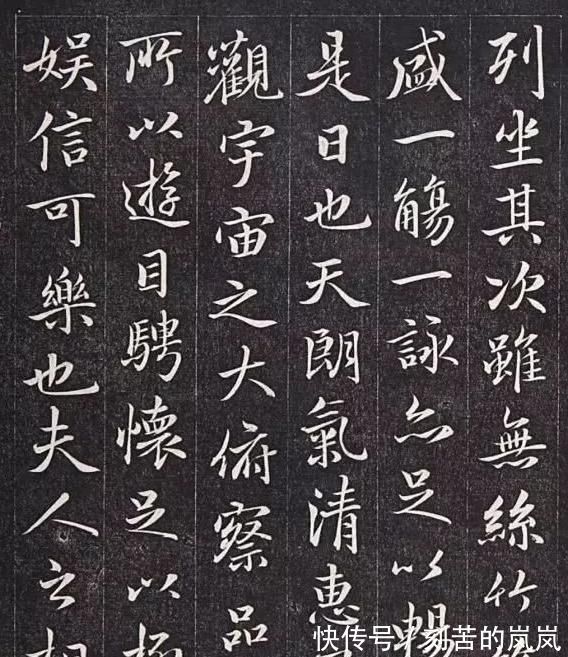 列坐其次雖無絲竹
盛一觴一詠亦足以暢
是日也天朗氣清惠
觀宇宙之大俯察品
所以遊目騁懷足以極
娛信可樂也夫人之相
快传号/刻苦的岚岚